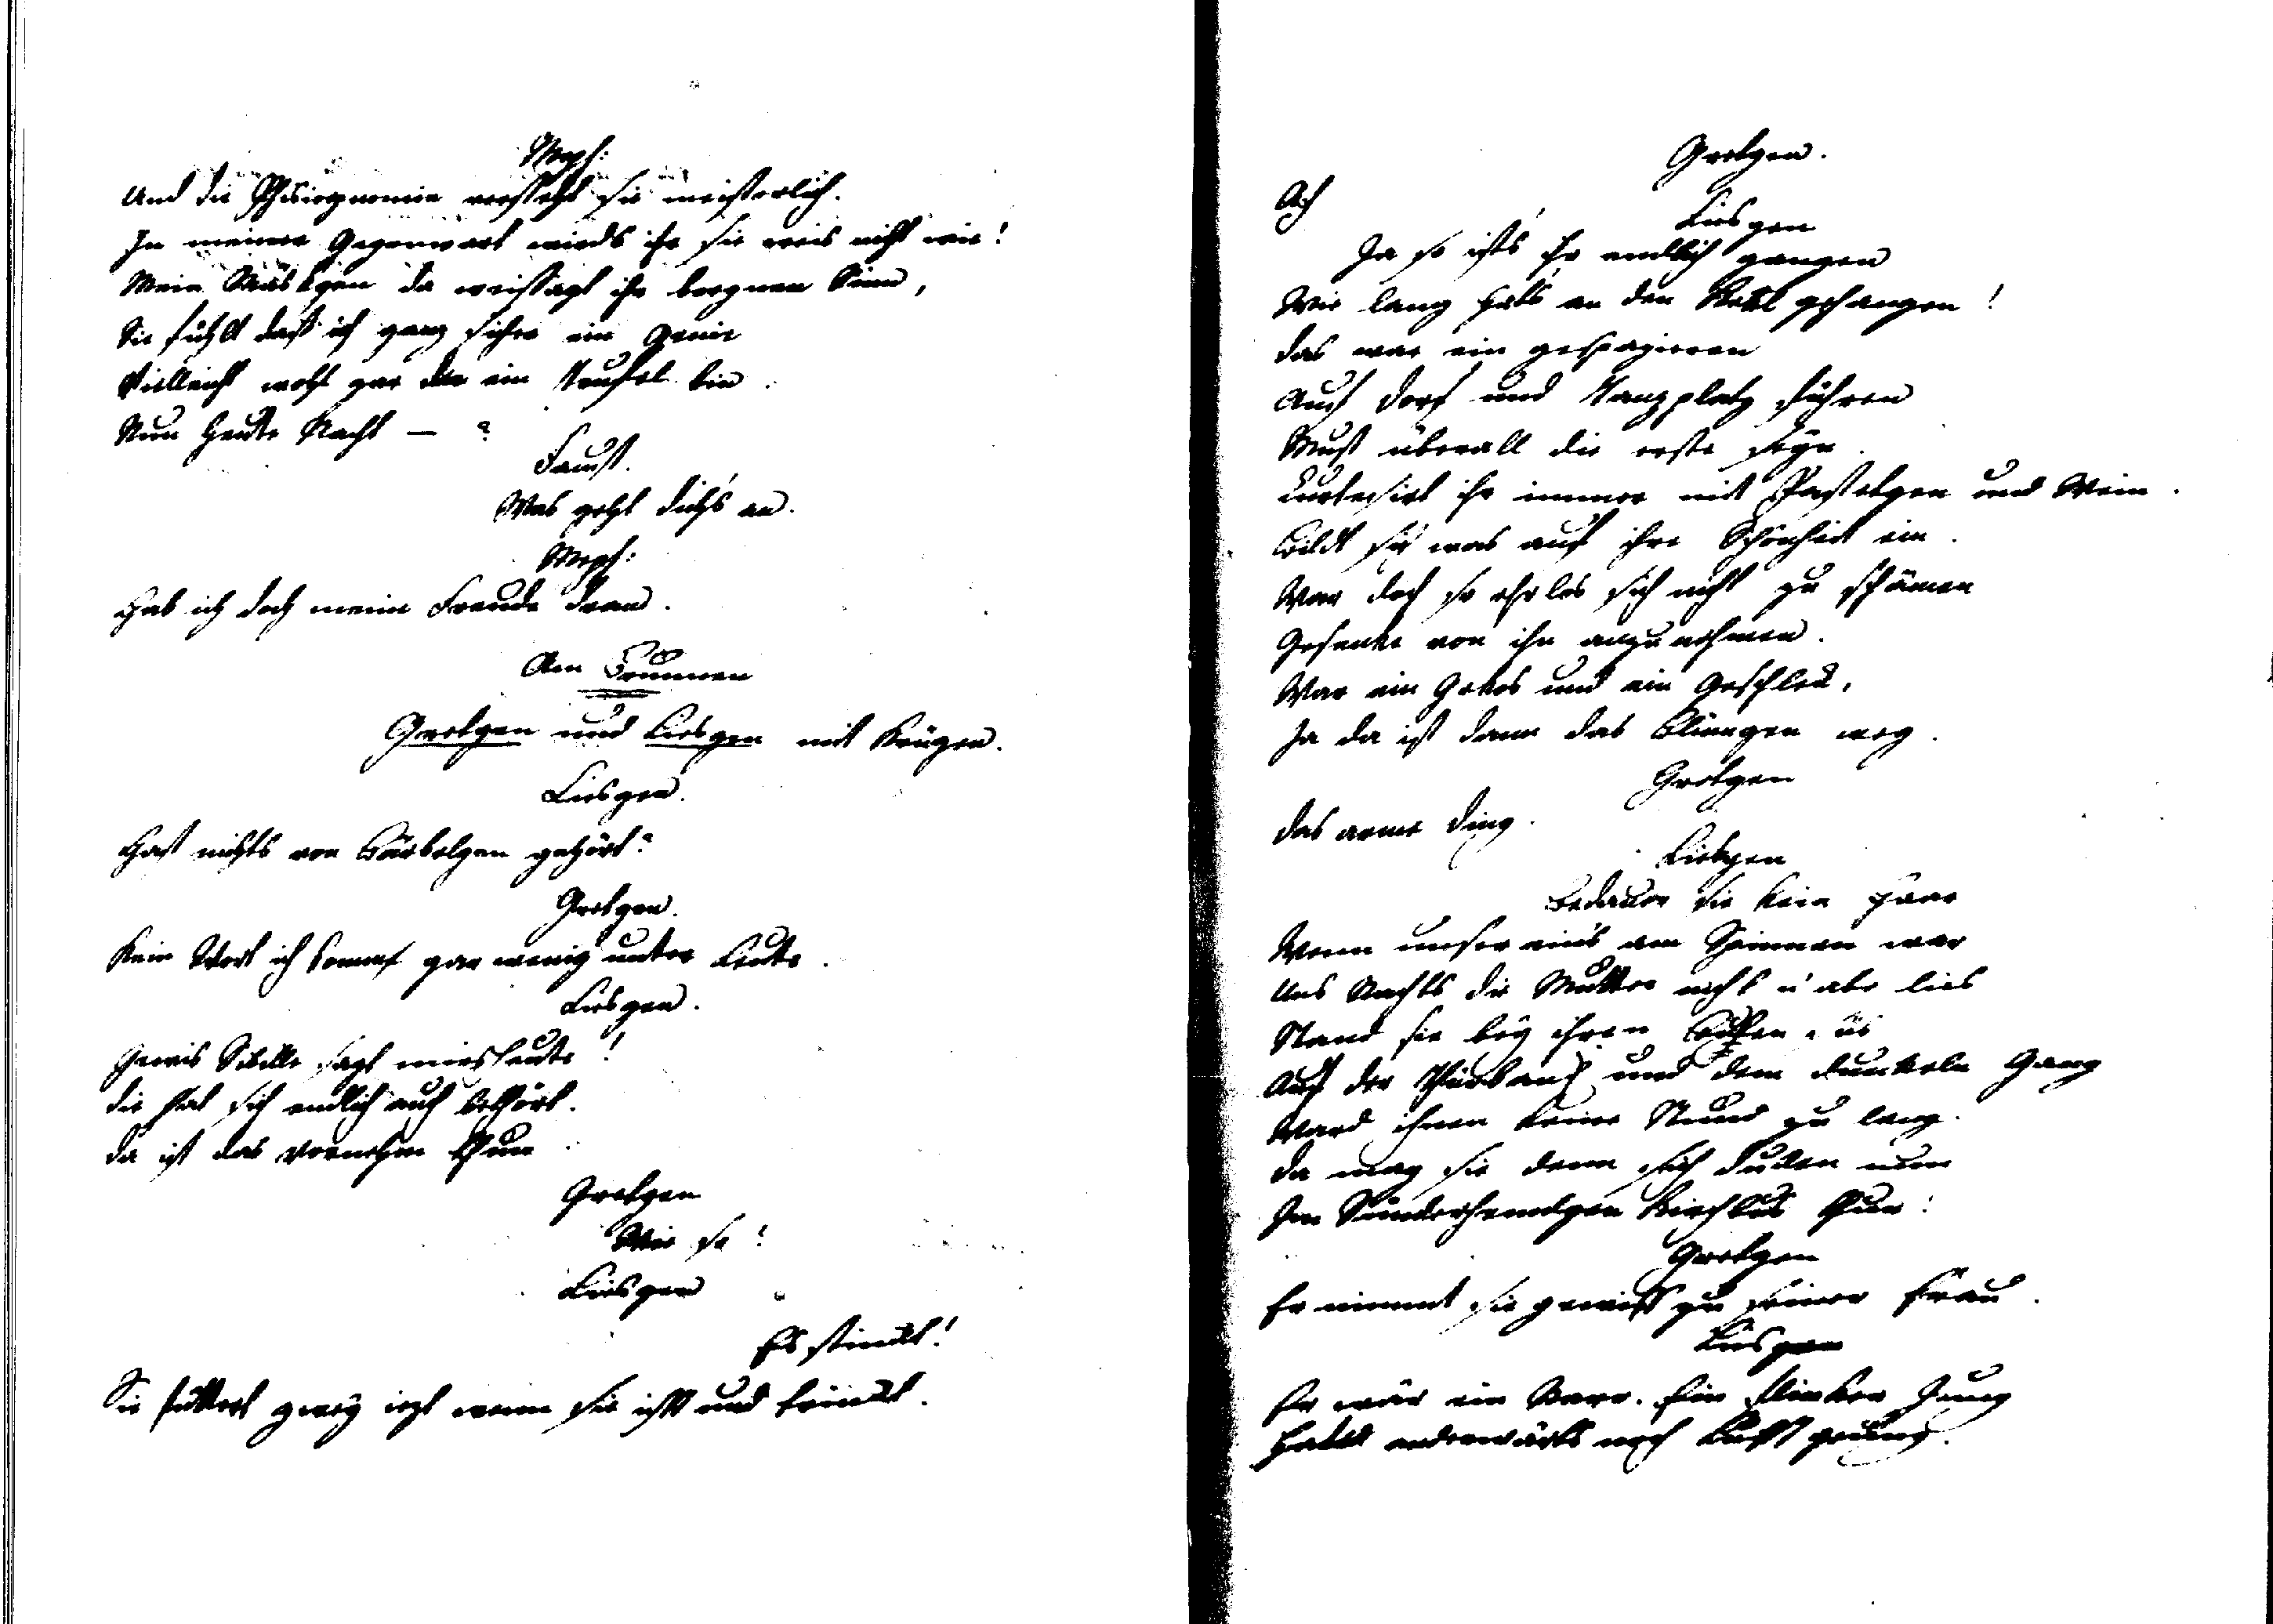 Meph:
Und die Phisiognomie versteht sie meisterlich.
In meiner Gegenwart wirds ihr sie weis nicht wie!
Mein Mäskgen da weissagt ihr borgnen Sinn,
Sie fühlt dass ich ganz sicher ein Genie
Vielleicht wohl gar ein Teufel bin.
Nun heute Nacht — ?
Faust.
Was geht dich's an.
Meph:
Hab ich doch meine Freude dran.
Am Brunnen
Gretgen und Liesgen mit Krügen.
Liesgen.
Hast nichts von Bärbelgen gehört?
Gretgen.
Kein Wort ich komm gar wenig unter Leute.
Liesgen.
Gewis Sibille sagt mirs heute!
Die hat sich endlich auch bethört.
Da ist das vornehm thun
Gretgen
Wie so?
Liesgen
Es stinckt!
Sie füttert zwey iezt wenn sie isst und trinckt.
Gretgen.
Ach
Liesgen
Ja so ists ihr endlich gangen
Wie lang hats an den Kerl gehangen!
Das war ein gespazieren
Auf Dorf und Tanzplaz führen
Musst überall die erste seyn
Curtesirt ihr immer mit Pastetgen und Wein.
Bildt sich was auf ihre Schönheit ein.
War doch so ehrlos sich nicht zu schämen
Geschencke von ihm anzunehmen.
War ein Gekos und ein Geschleck,
Ja da ist dann das Blümgen weg.
Gretgen
Das arme Ding.
Liesgen
Bedauer sie kein Haar
Wenn unser eins am Spinnen war
Uns Nachts die Mutter nicht n'abe lies
Stand sie bey ihrem Bulen süs
Auf der Thürbanck und dem dunckeln Gang
Ward ihnen keine Stund zu lang.
Da mag sie denn sich ducken nun
Im Sünderhemdgen Kirchbus thun!
Gretgen
Er nimmt sie gewiss zu seiner Frau.
Liesgen
Er wär ein Narr. Ein flincker Jung
Hat anderwärts noch Lufft genung.